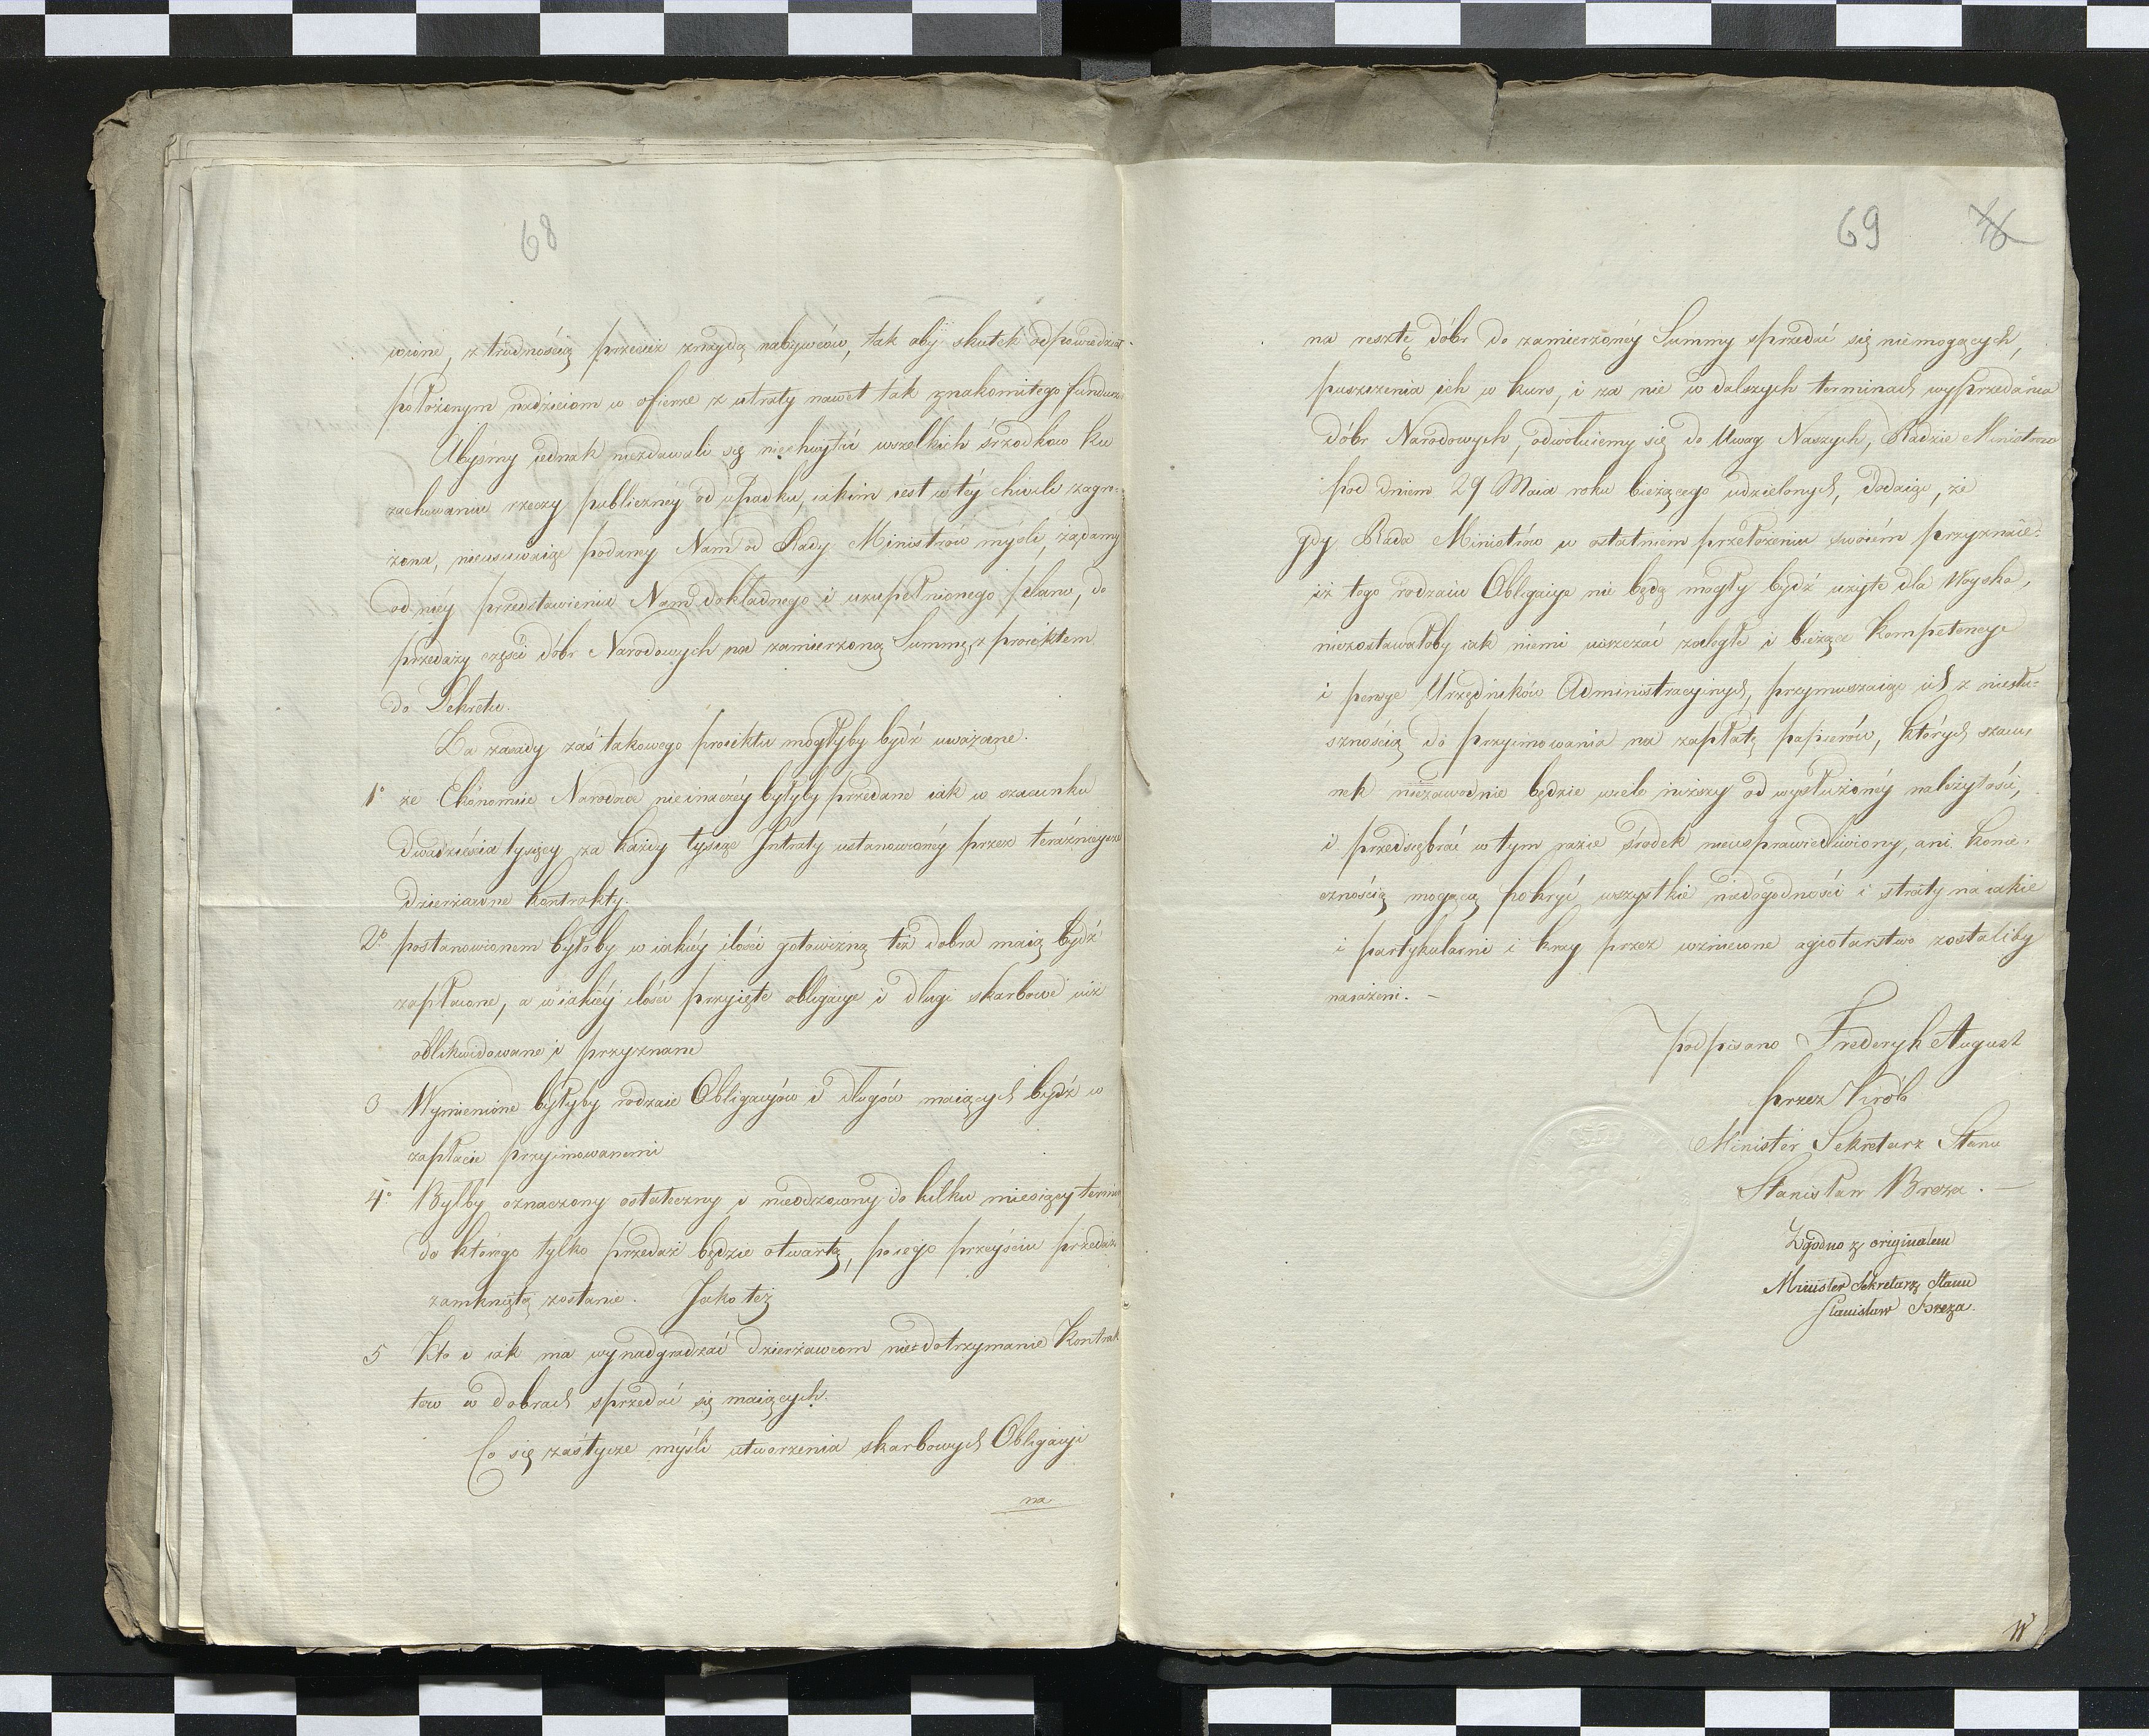 68
wione, z trudnością przecież znaydą nabywców, tak aby skutek odpowiedział
położonym nadzieiom w ofierze z utraty nawet tak znakomitego fundusz
Abyśmy iednak niezdawali się niechwytać wszelkich śrzodków ku
zachowaniu rzeczy publiczney od upadku, iakim iest w téy chwili zagro-
żona, nieusuwaiąc podaney Nam od Rady Ministrów myśli, żądamy
od niéy przedstawienia Nam dokładnego i uzupełnionego planu, do
przedaży części dóbr Narodowych na zamierzoną Summę, z proiektem
do Dekretu.
Za zasady zaś takowego proiektu mogłyby bydź uważane.
1° że Ekonomie Narodowe nieinaczéy byłyby przedane iak w szacunku
dwadzieścia tysięcy za każdy tysiąc Intraty ustanowionéy przez teraźnieysze
dzierżawne kontrakty.
2° postanowionem byłoby w iakiéy ilości gotowizną też dobra maią bydź
zapłacone, a w iakiéy ilości przyięte obligacye i długi skarbowe iuż
oblikwidowane i przyznane
3 Wymienione byłyby rodzaie Obligacyów i długów maiących bydź w
zapłacie przyimowanemi
4° Byłby oznaczony ostateczny i nieodzowny do kilku miesięcy termin
do którego tylko przedaż będzie otwartą, po iego prześciu przedaż
zamkniętą zostanie. Jako też
5 Kto i iak ma wynadgradzać dzierżawcom nie-dotrzymanie Kontrak
tów w dobrach sprzedać się maiących.
Co się zaś tycze myśli utworzenia skarbowych Obligacyi
na
69 76
na resztę dóbr do zamierzonéy Summy sprzedać się niemogących,
puszczenia ich w kurs, i za nie w dalszych terminach wyprzedania
dóbr Narodowych, odwołuiemy się do Uwag Naszych, Radzie Ministrów
pod dniem 29 Maia roku bieżącego udzielonych, dodaiąc, że
gdy Rada Ministrów w ostatniem przełożeniu swoiém przyznaie-
iż tego rodzaiu Obligacye nie będą mogły bydź użyte dla Woyska,
niezostawałoby iak niemi uiszczać zaległe i bieżące kompetencye
i pensye Urzędników Administracyinych, przymuszaiąc ich z niesłu-
sznością do przyimowania na zapłatę papierów, których szacu-
nek niezawodnie będzie wiele niższy od wysłużonéy należytości,
i przedsiębrać w tym razie środek nieusprawiedliwiony, ani konie-
cznością mogącą pokryć wszystkie niedogodności i straty na iakie
i partykularni i kray przez wzniecone agiotarstwo zostaliby
narażeni. —
podpisano Frederyk August
przez Króla
Minister Sekretarz Stanu
Stanisław Breza. —
Zgodno z originałem
Minister Sekretarz Stanu
Stanisław Breza.